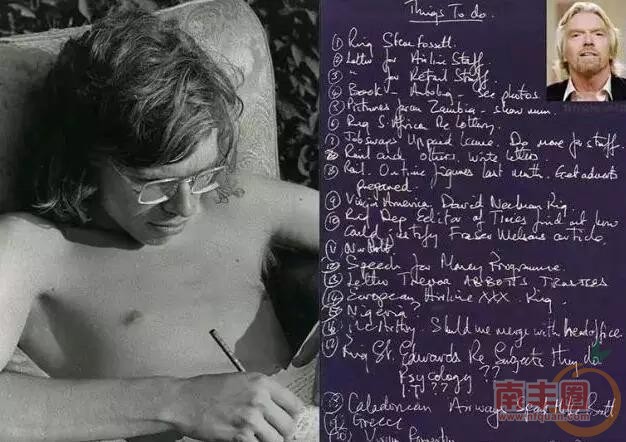 Things To do.
① Ring Steve Fossett.
② Letter for Airline Staff
③ " for Retail Staff.
④ Book - - See photos
⑤ Pictures from Zambia - show mum.
⑥ Ring S. Africa Re Lottery.
⑦ Jobswaps Unpaid Leave. Do more for staff.
Rail and others. Write letters.
⑧ Rail. Ontime figures last month. Get adverts
prepared.
⑨ Virgin America David Neeleman Ring
⑩ Ring Dep Editor of Times find out how
could justify Fraser article.
⑪
⑫ Speech for Money Programme.
⑬ Letter Trevor ABBOTTS TRUSTEES
⑭ European Airline XXX. Ring.
⑮ Nigeria
⑯ McCarthy. Should we merge with headoffice
⑰ Ring St. Edwards Re Subjects they do
Psycology ??
I.T ??
⑱ Caledonean Airways
Greece
Virgin
南丰网
www.nfquan.com